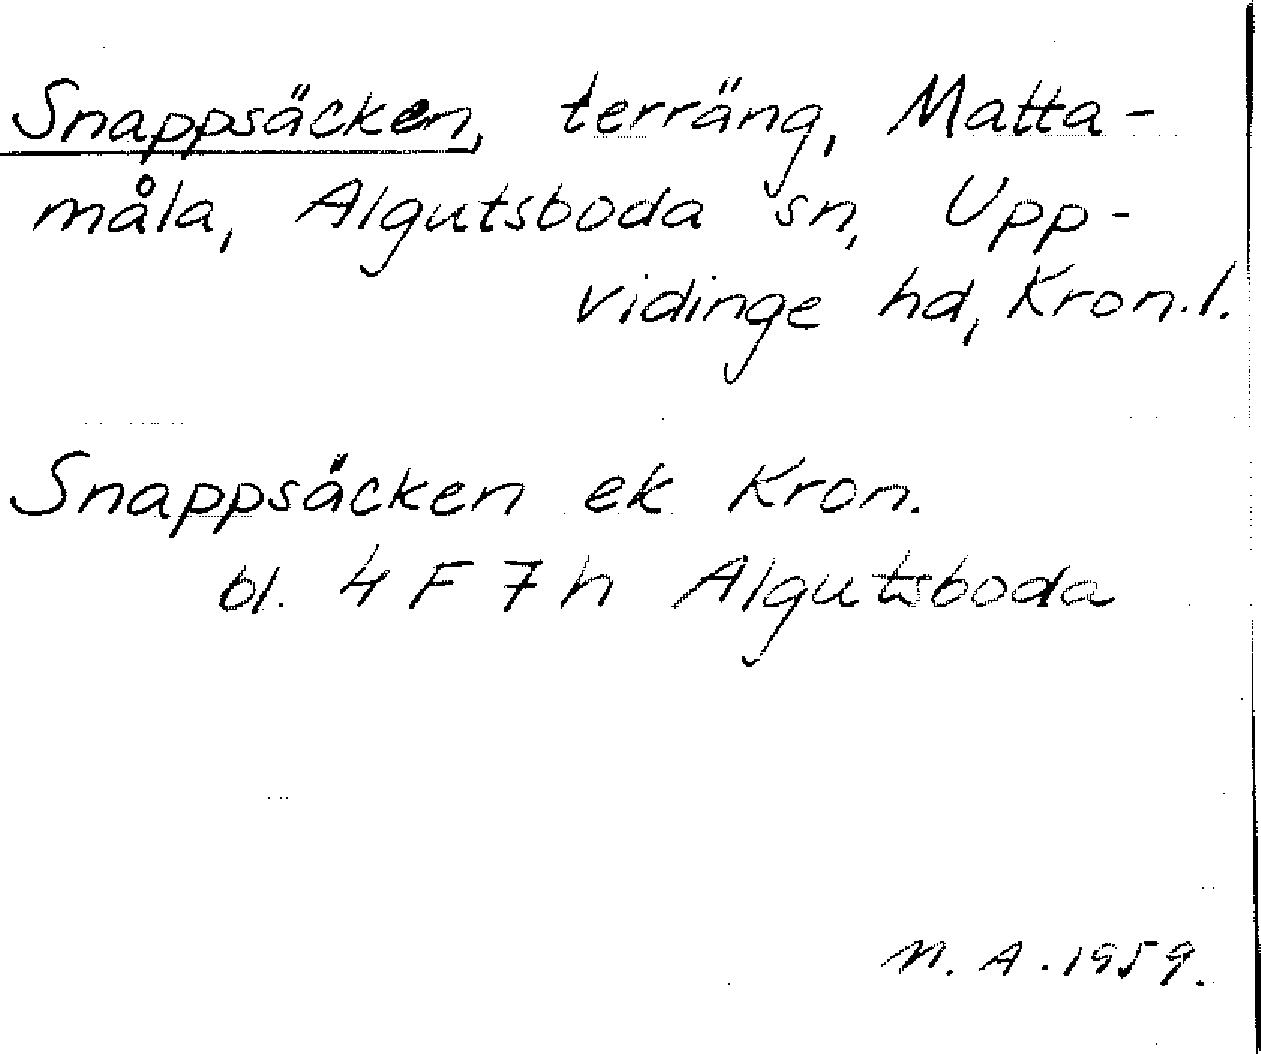 Snappsäcken, terräng, Matta-
måla, Algutsboda sn, Upp-
vidinge hd, Kron.l.
Snappsäcken ek Kron.
bl. 4 F 7 h Algutsboda
N. A. 1959.